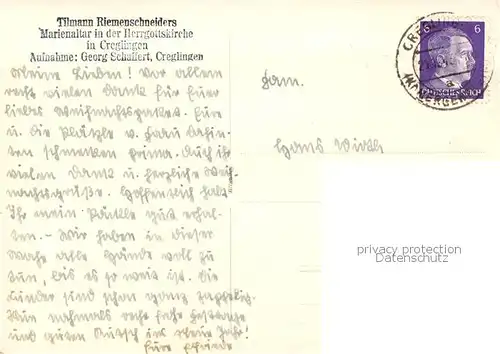 Tilmann Riemenschneiders
Marienaltar in der Herrgottskirche
in Creglingen
Aufnahme: Georg Schaffert, Creglingen
Meine Lieben! Vor allem
recht vielen Dank für Euer
liebes Weihnachtspaket. Eure
u. die Päckle v. Frau
ten schmecken prima. Auch Ihr
vielen Dank u. herzliche Weih-
nachtsgrüße. Hoffentlich habt
Ihr mein Päckle gut erhal-
ten. - Wir haben in dieser
Woche alle Hände voll zu
tun, bis es so weit ist. Die
Kinder sind schon ganz zappelig.
Nun nochmals recht frohe Festtage
und guten Rutsch ins Neue Jahr!
Eure Elfriede
Fam.
Hans Wirth
CREGLINGEN
(MERGENTH
6
DEUTSCHES REICH
privacy protection
AK-Ansichtskarten.de